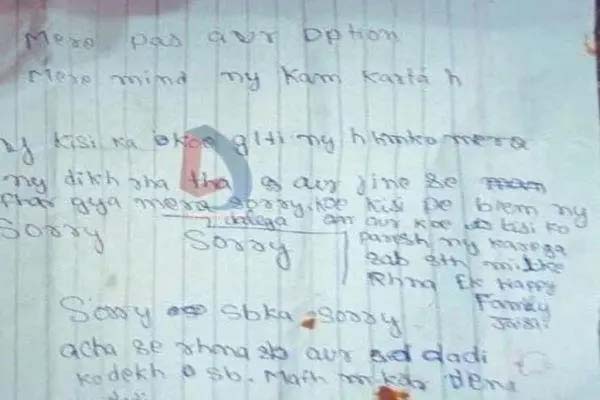 Mere pas aur option
Mere mind ny kam karta h
kisi ka koe glti ny h hmko mera
ny dikh rha tha aur jine se
bhar gya mera sorry. koe kisi pe blem ny
dalega aur koe kisi ko
Sorry Sorry paresh ny karega
sab sth milke
Rhna Ek Happy
Family
Sorry sbka sorry
acha se rhma aur dadi
ko dekh sb. Mafh m kar dena